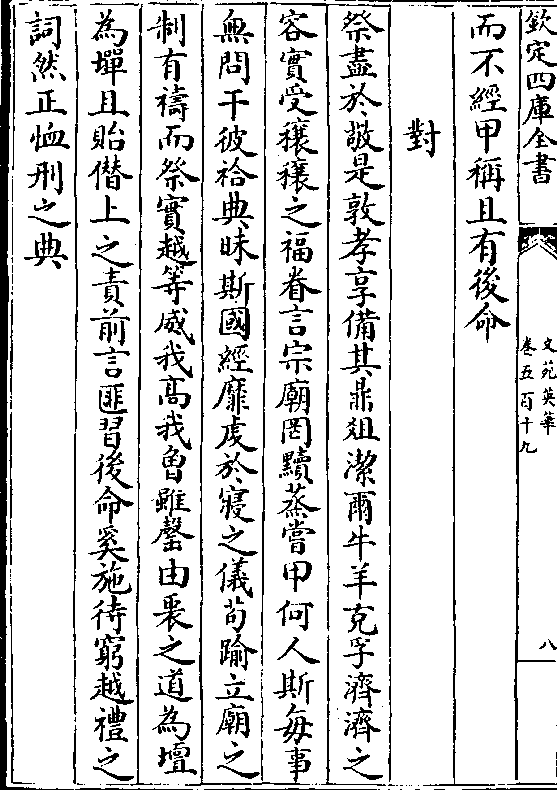 欽定四庫全書
文苑英華
卷五百十九
八
而不經甲稱且有後命
對
祭盡於敬是敦孝享備其鼎俎潔爾牛羊克孚濟濟之
容實受穰穰之福眷言宗廟罔黷蒸嘗甲何人斯每事
無問干彼祫典昧斯國經靡虔於寢之儀苟踰立廟之
制有禱而祭實越等威我髙我曽雖罄由衷之道為壇
為墠且貽僭上之責前言匪習後命奚施待窮越禮之
詞然正恤刑之典